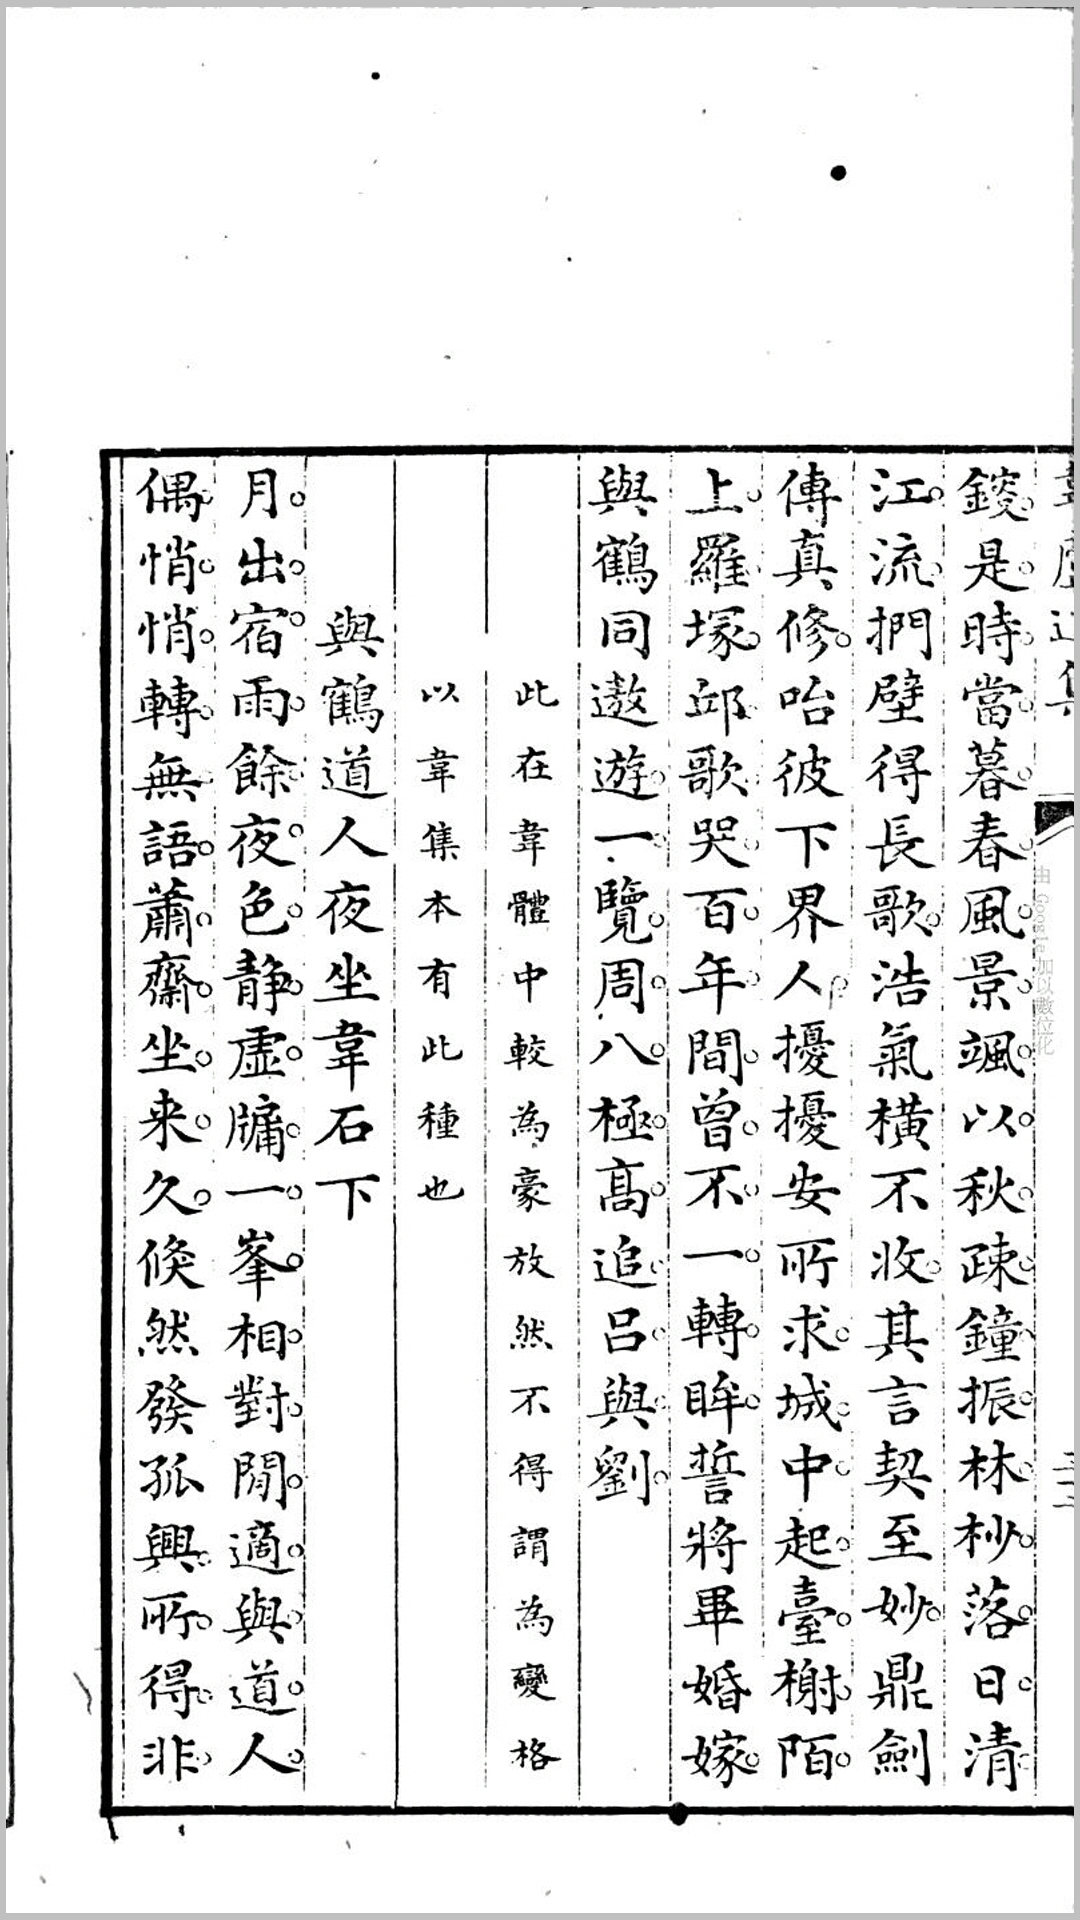 鍐是時當暮春風景颯以秋疎鐘振林杪落日清
江流捫壁得長歌浩氣橫不收其言契至妙鼎劍
傳真修咍彼下界人擾擾安所求城中起臺榭陌
上羅塚邱歌哭百年間曾不一轉眸誓將畢婚嫁
與鶴同遨遊一覽周八極高追呂與劉
此在韋體中較為豪放然不得謂為變格
以韋集本有此種也
與鶴道人夜坐韋石下
月出宿雨餘夜色靜虛牖一峯相對閒適與道人
偶悄悄轉無語蕭齋坐来久倏然發孤興所得非
由 Google 加以數位化